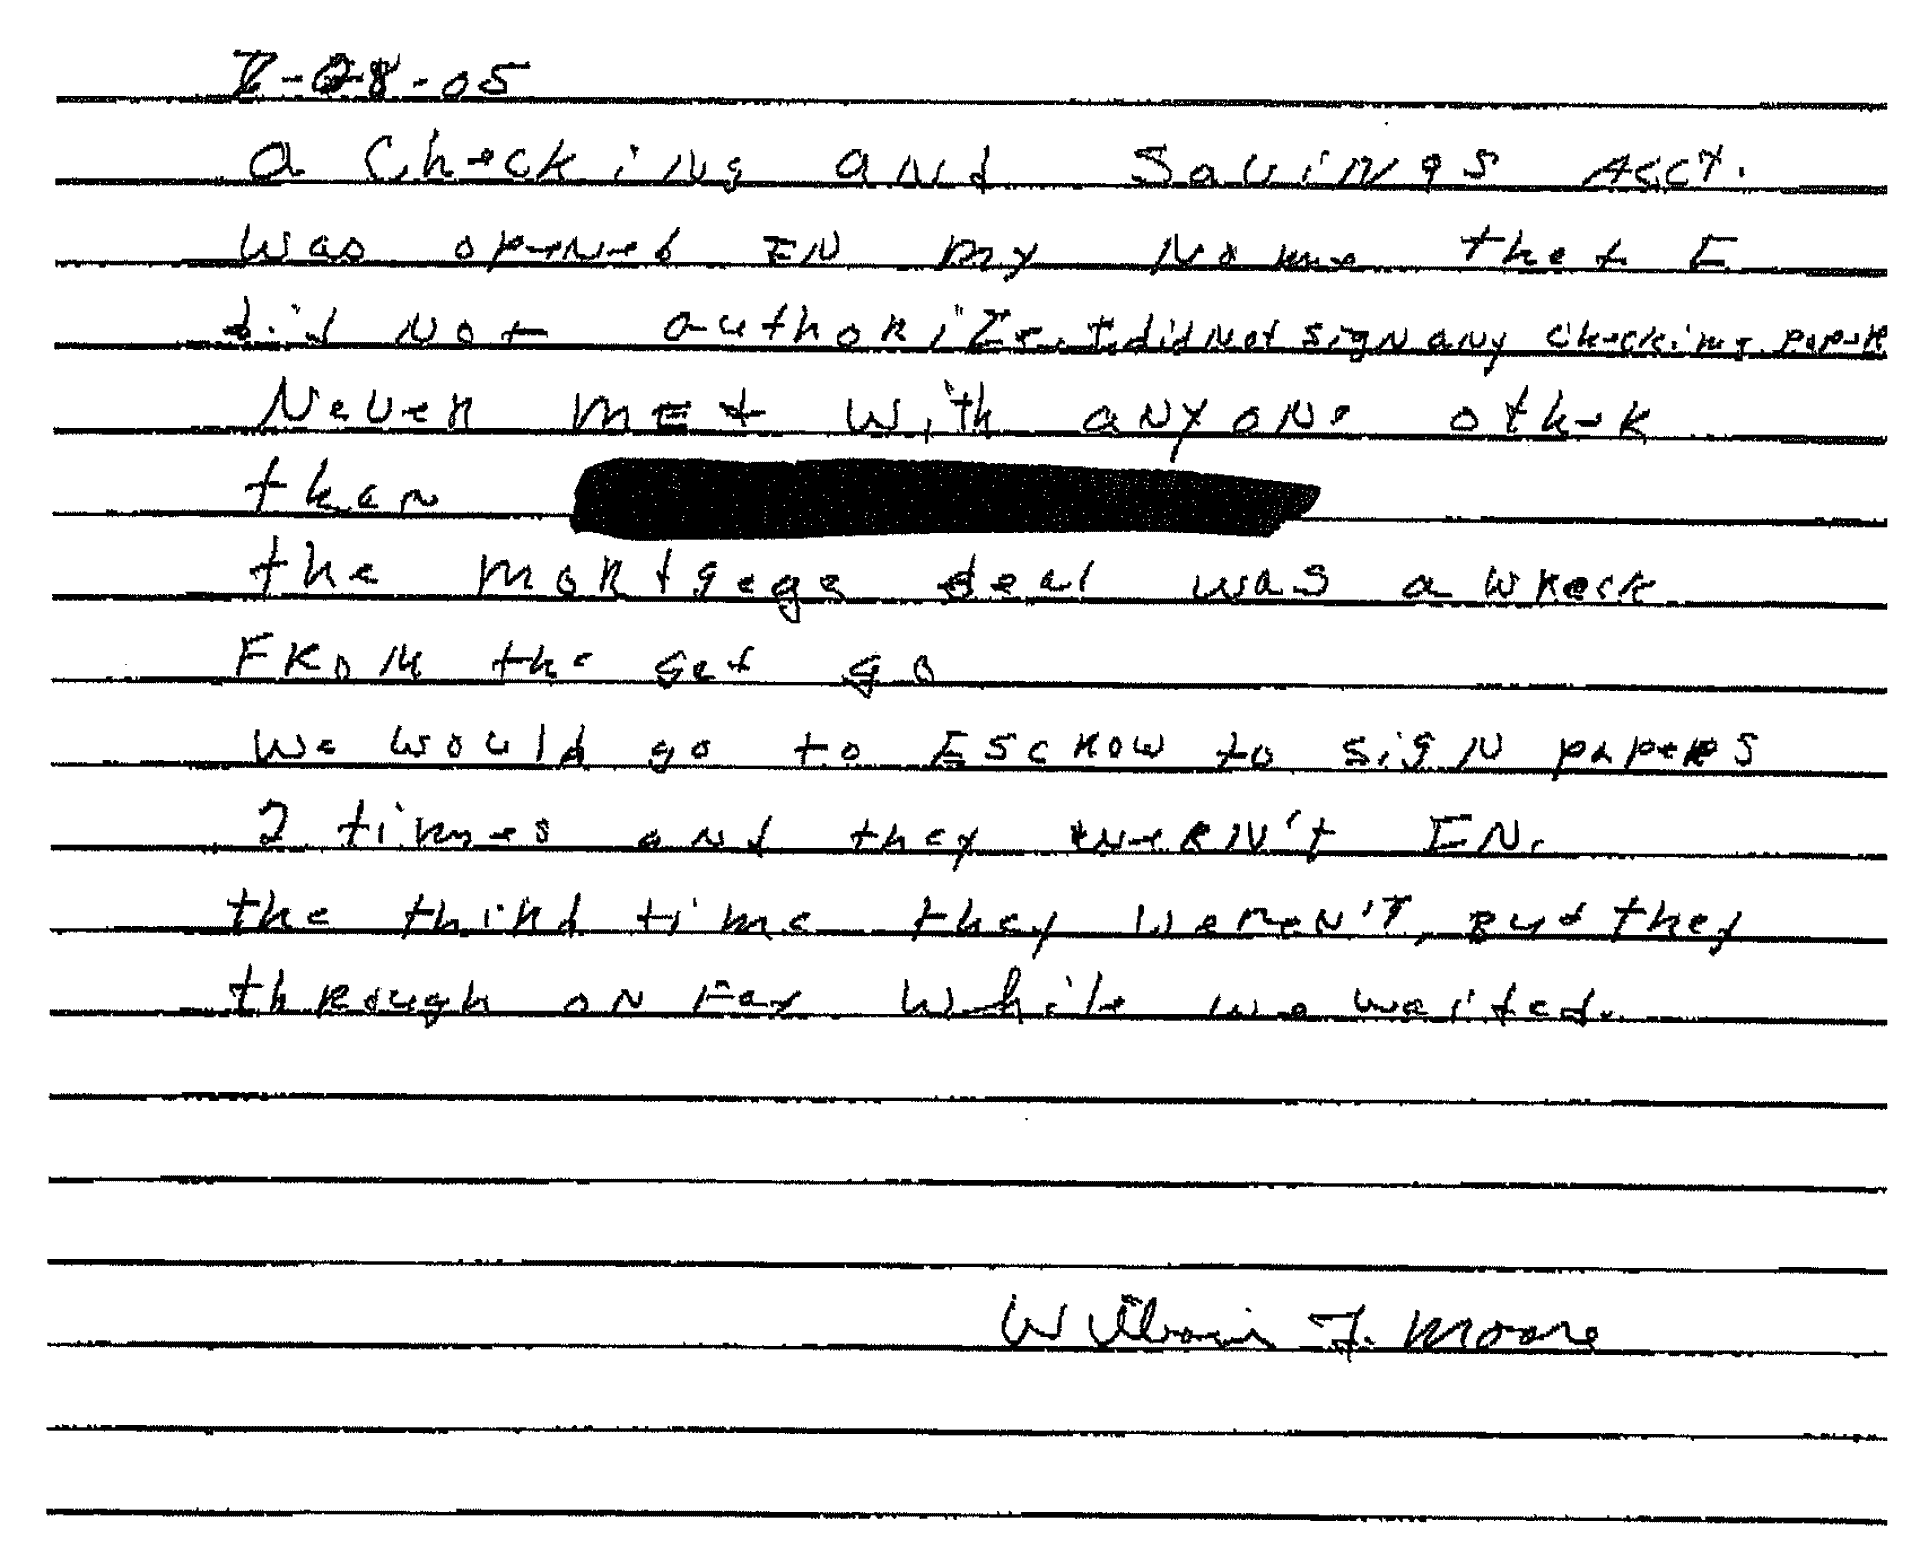 7-28-05
a Checking and Savings Acct.
was opened IN my Name that I
did Not authorize. I did Not sign any checking paper
Never mEt with anyone other
than
the mortgage deal was a wreck
From the get go
we would go to Escrow to sign papers
2 times and they wereN't IN.
the third time they wereN'T, But they
through on Fax while we waited.
William J. Moore